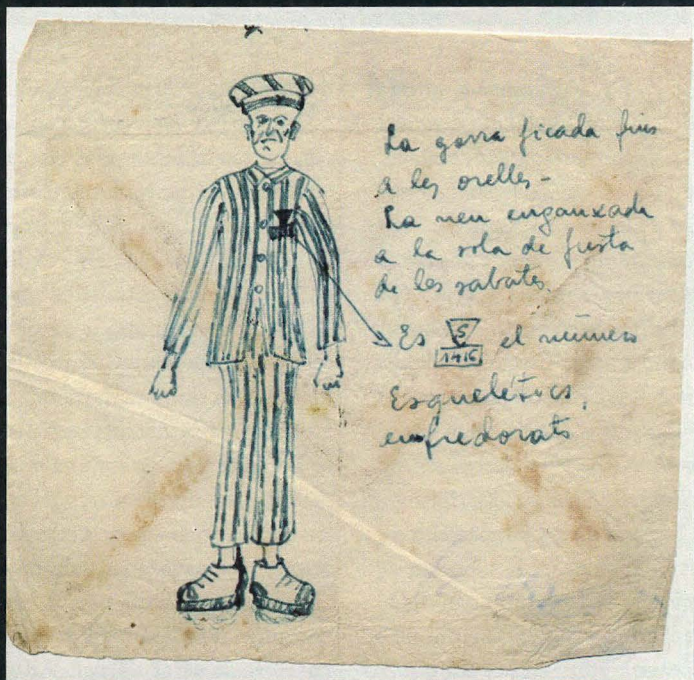 La gorra ficada fins
a les orelles -
La neu enganxada
a la sola de fusta
de les sabates.
Es S el número
1416
Esquelètics,
enfredorats